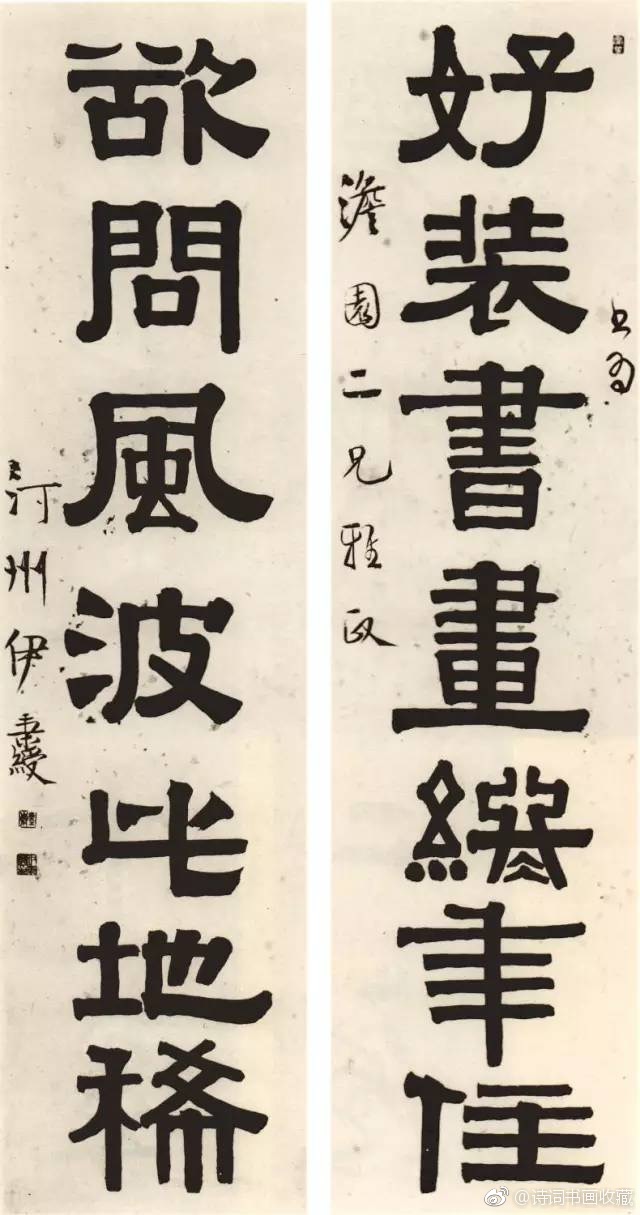 好裝書畫終年住
澹園二兄雅政
欲問風波此地稀
汀州伊秉綬
@诗词书画收藏